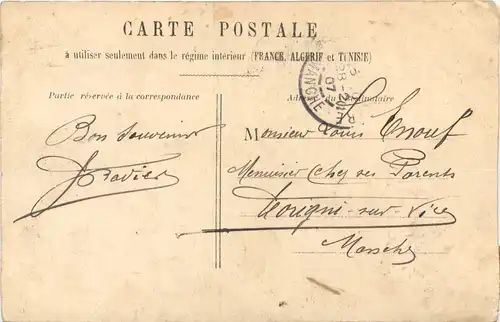 CARTE POSTALE
à utiliser seulement dans le régime intérieur (FRANCE, ALGERIE et TUNISIE)
Partie réservée à la correspondance
Adresse du Destinataire
Bon Souvenir
Monsieur Louis Enouf
Menuisier Chez ses Parents
Torigni-sur-Vire
Manche
MANCHE
07